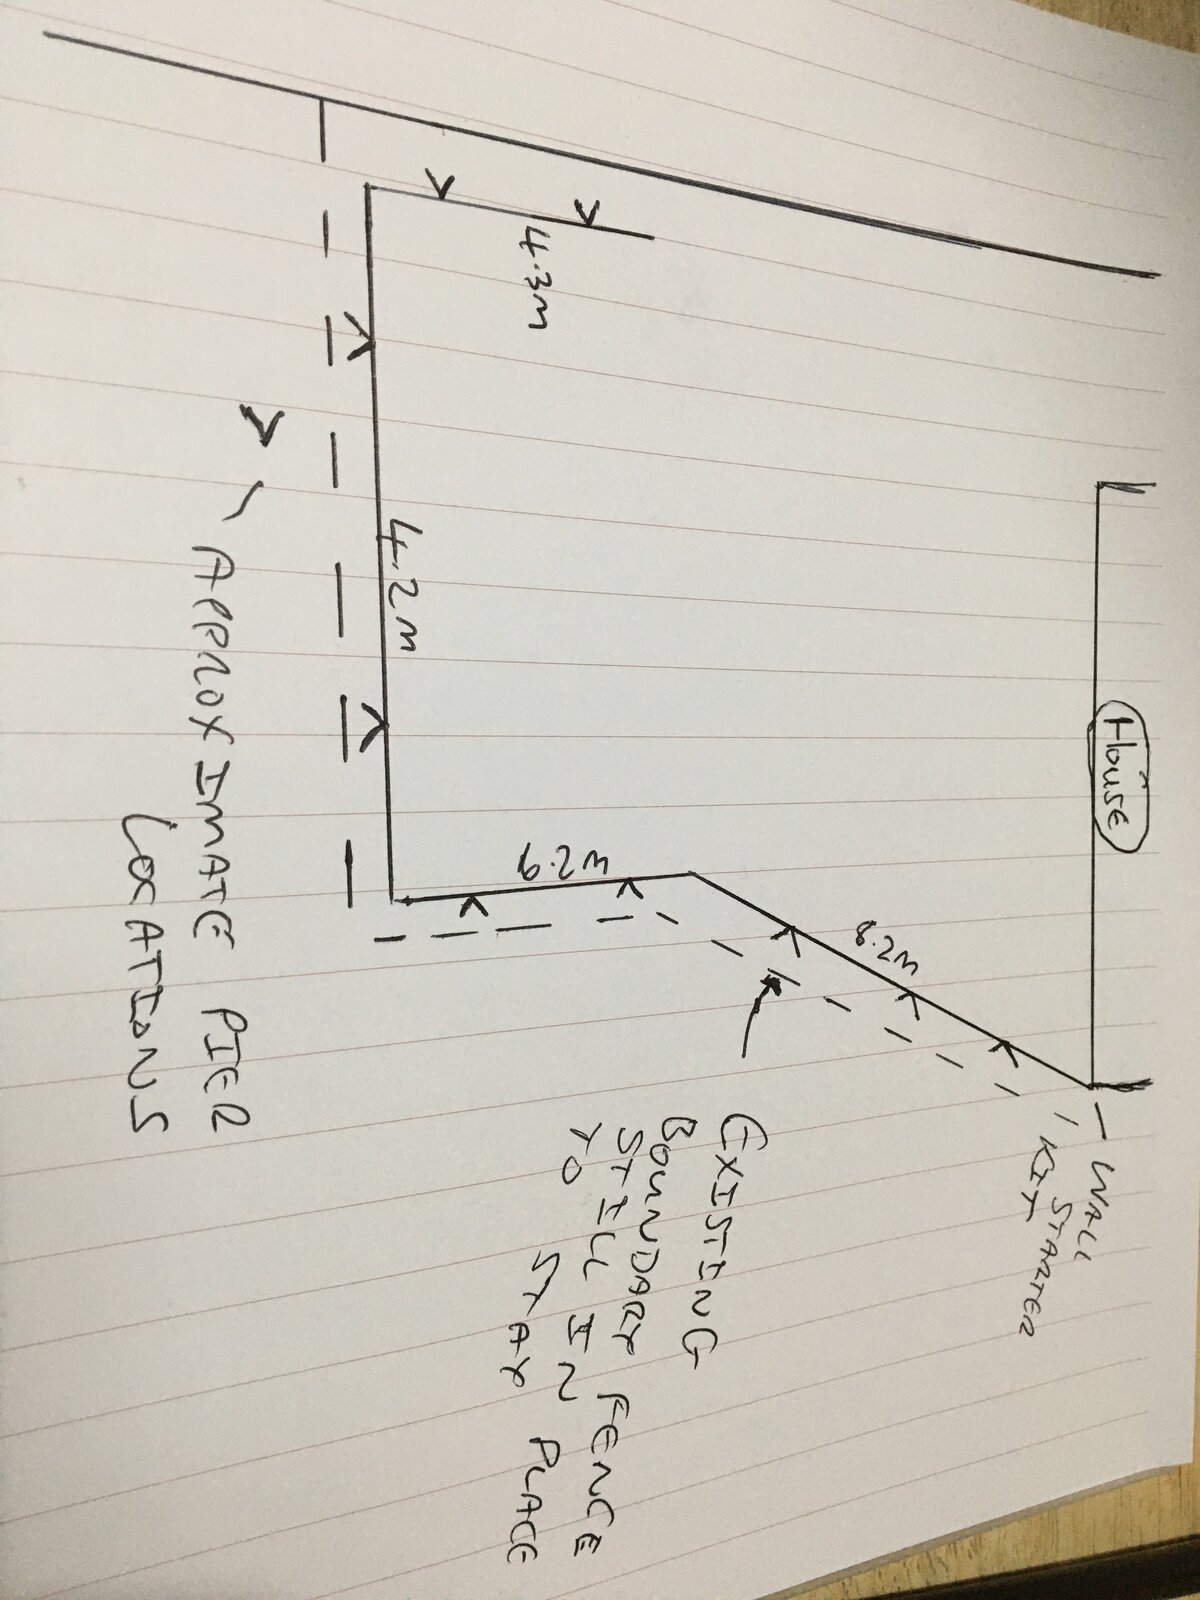 House
WALL
STARTER
KIT
8.2m
6.2m
4.3m
4.2m
EXISTING
BOUNDARY FENCE
STILL IN PLACE
TO STAY
APPROXIMATE PIER
LOCATIONS